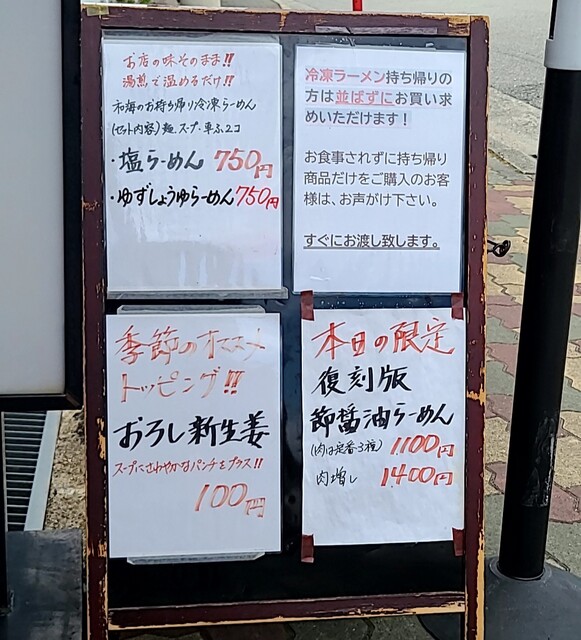 お店の味そのまま!!
湯煎で温めるだけ!!
和海のお持ち帰り冷凍らーめん
(セット内容)麺、スープ・車ふ2コ
・塩らーめん 750円
・ゆずしょうゆらーめん 750円
冷凍ラーメン持ち帰りの
方は並ばずにお買い求
めいただけます！
お食事されずに持ち帰り
商品だけをご購入のお客
様は、お声がけ下さい。
すぐにお渡し致します。
季節のオススメ
トッピング!!
おろし新生姜
スープにさわやかなパンチをプラス!!
100円
本日の限定
復刻版
節醤油らーめん
(肉は定番3種) 1100円
肉増し 1400円